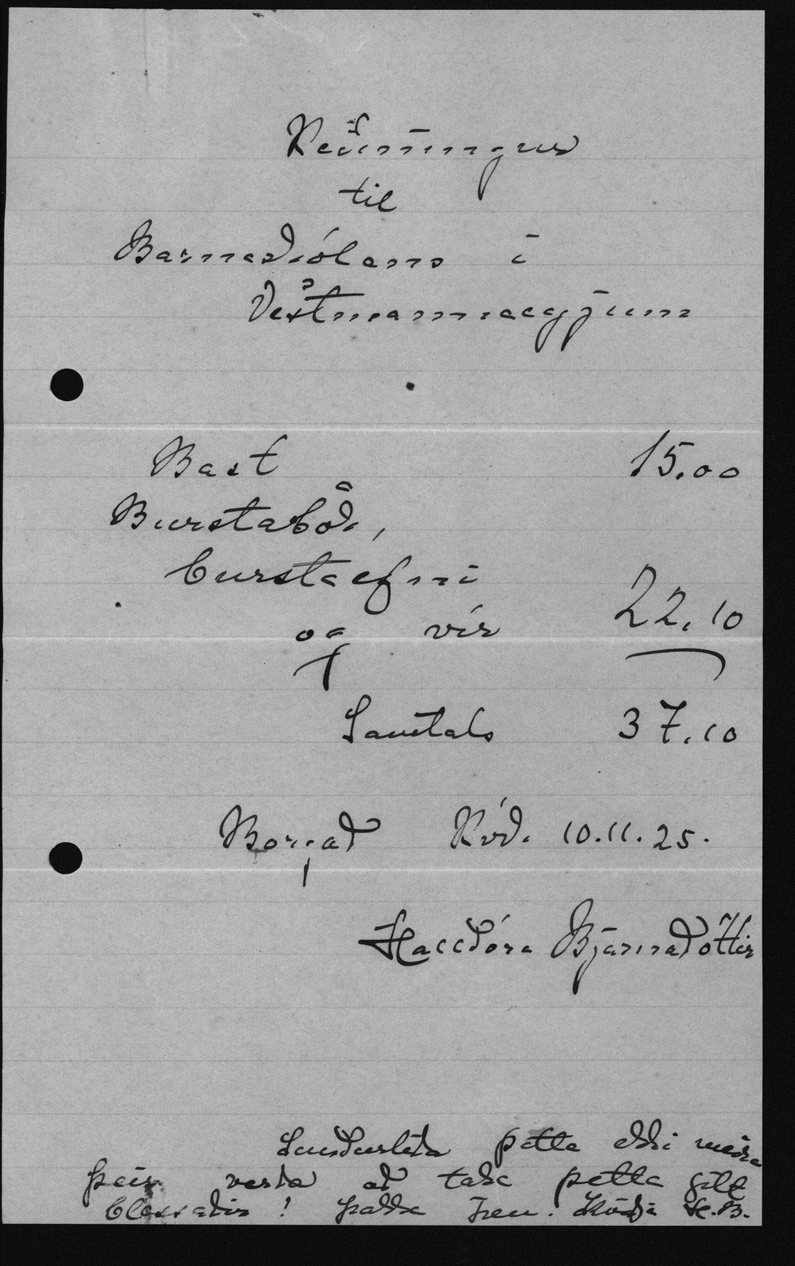 Reikningur
til
Barnaskólans í
Vestmannaeyjum
Bast 15.00
Burstabök,
burstaefni
og vír 22.10
Samtals 37.10
Borgað Rvík. 10.11.25.
Halldóra Bjarnadóttir
Sundurliða þetta ekki meira
þeir verða að taka þetta gilt
blessaðir! Þakka Kveðja H.B.